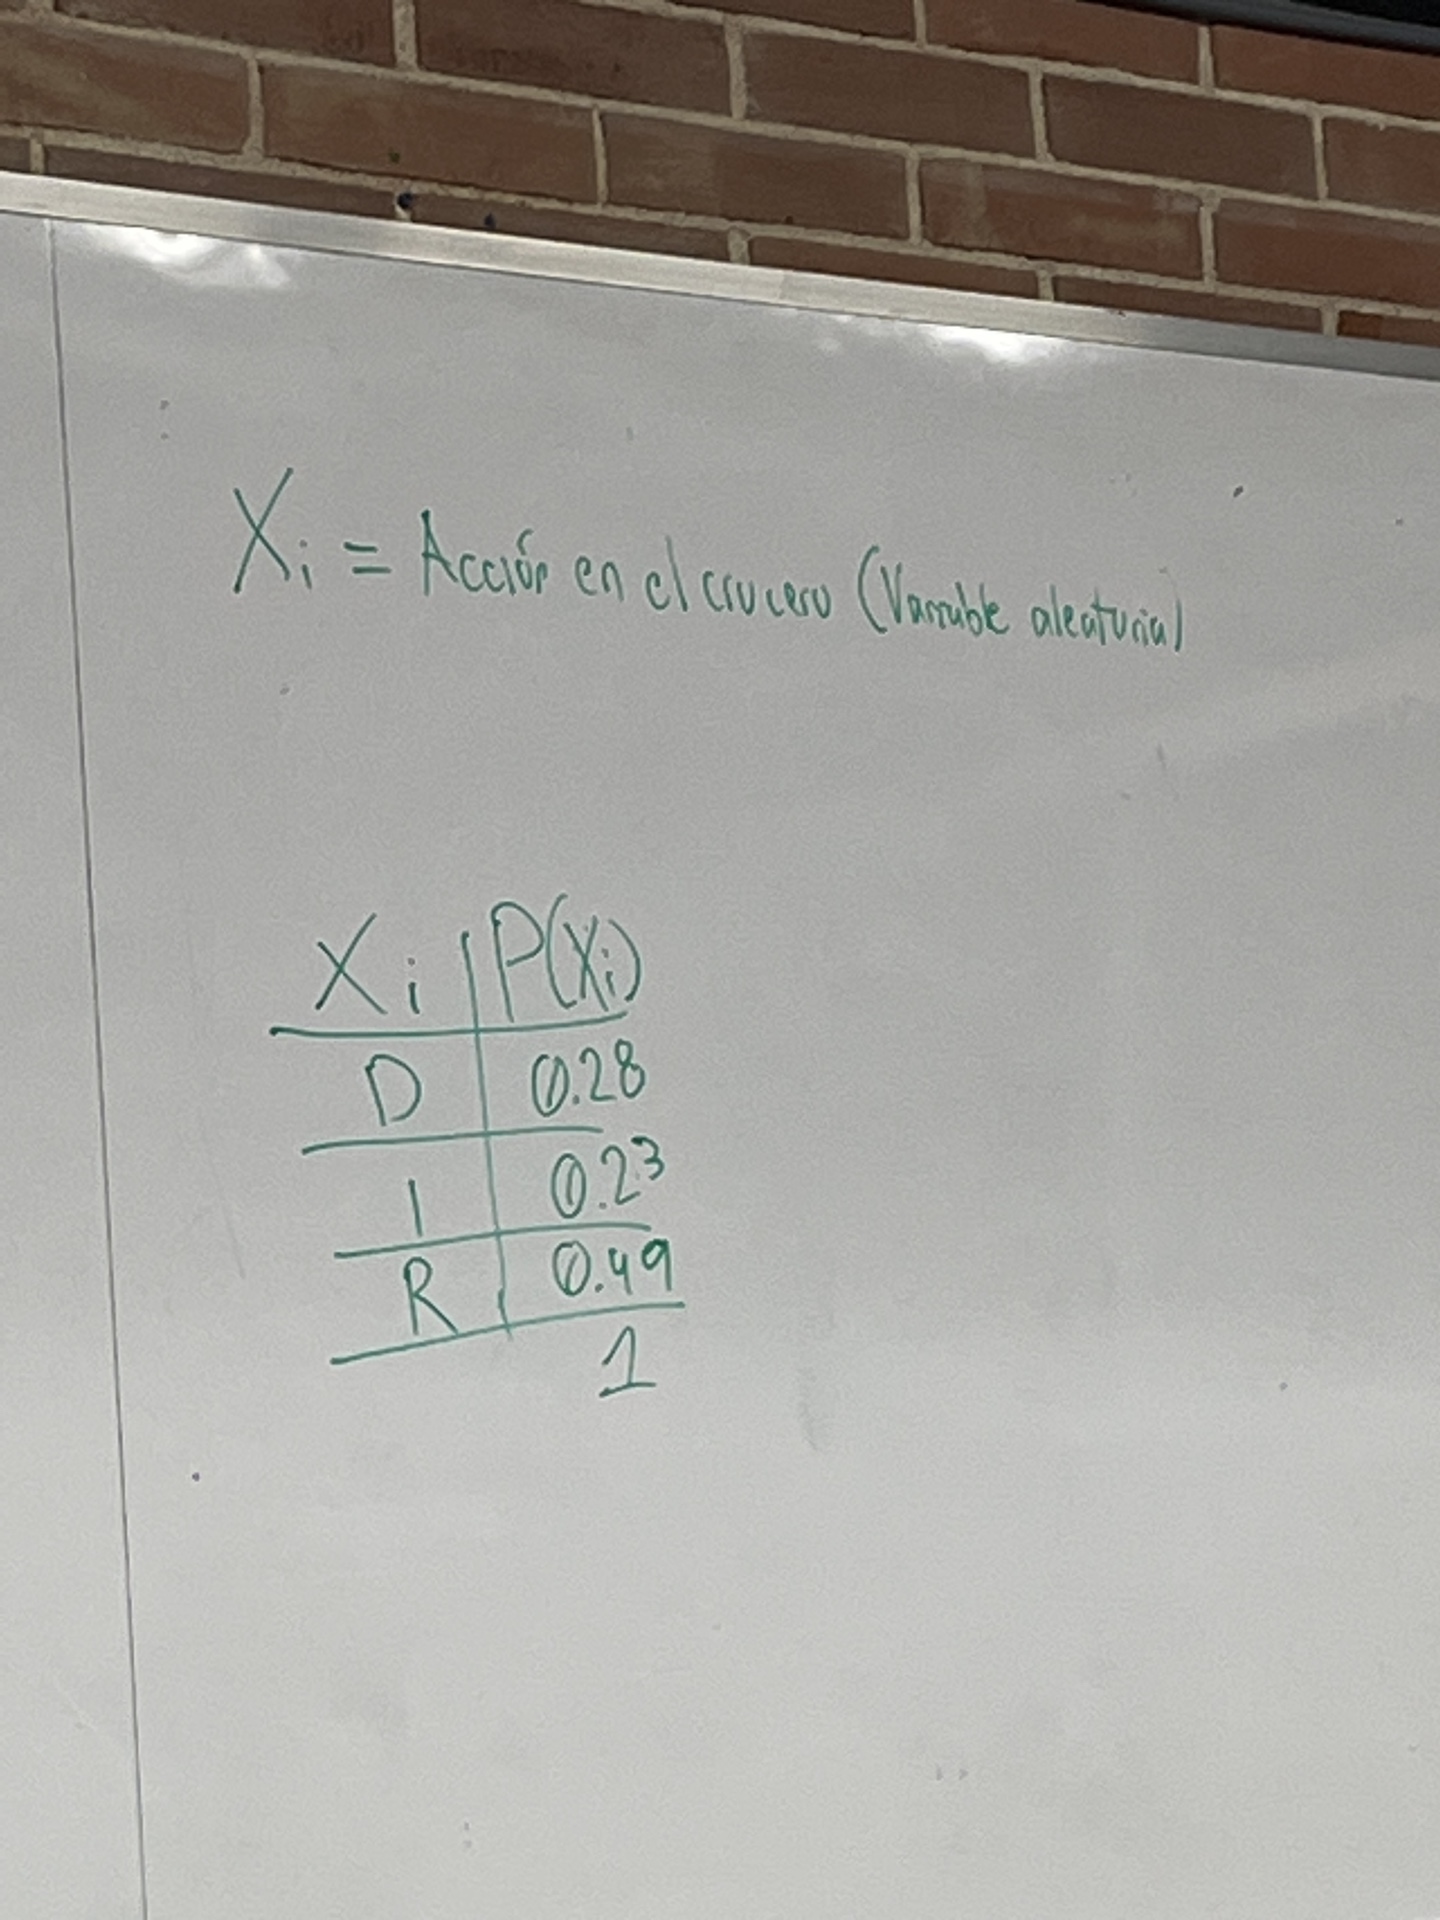 Xi = Acción en el crucero (Variable aleatoria)
Xi P(Xi)
D 0.28
I 0.23
R 0.49
1